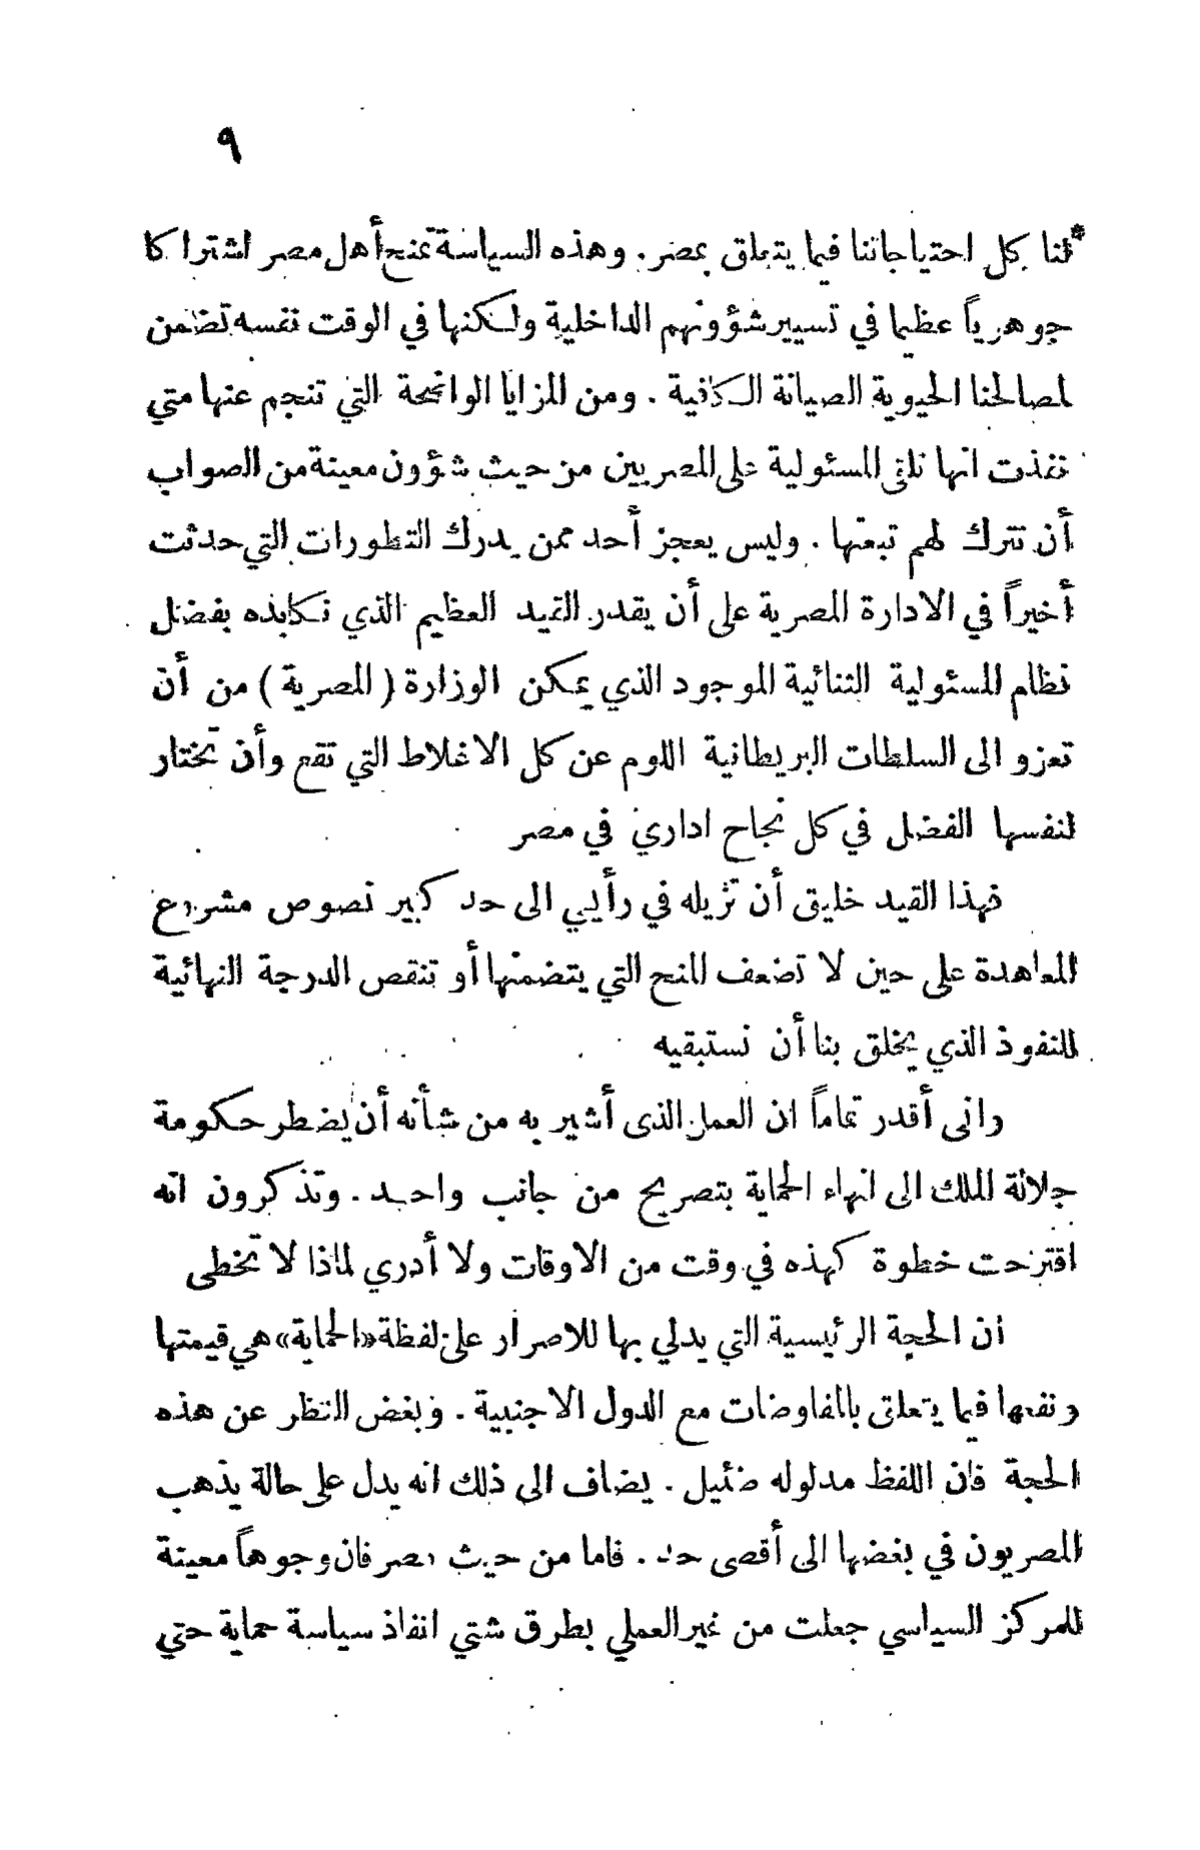 ٩
لنا بكل احتياجاتنا فيما يتعلق بمصر. وهذه السياسة تمنح أهل مصر اشتراكا
جوهرياً عظيما في تسيير شؤونهم الداخلية ولكنها في الوقت نفسه تضمن
لمصالحنا الحيوية الصيانة الكافية. ومن المزايا الواضحة التي تنجم عنها متي
نفذت انها تلقى المسئولية على المصريين من حيث شؤون معينة من الصواب
أن تترك لهم تبعتها. وليس يعجز أحد ممن يدرك التطورات التي حدثت
أخيراً في الادارة المصرية على أن يقدر القيد العظيم الذي نكابده بفضل
نظام المسئولية الثنائية الموجود الذي يمكن الوزارة (المصرية) من أن
تعزو الى السلطات البريطانية اللوم عن كل الاغلاط التي تقع وأن تختار
لنفسها الفضل في كل نجاح اداري في مصر
فهذا القيد خليق أن تزيله في رأيي الى حد كبير نصوص مشروع
المعاهدة على حين لا تضعف المنح التي يتضمنها أو تنقص الدرجة النهائية
للنفوذ الذي يخلق بنا أن نستبقيه
واني أقدر تماماً ان العمل الذى أشير به من شأنه أن يضطر حكومة
جلالة الملك الى انهاء الحماية بتصريح من جانب واحد. وتذكرون انه
اقترحت خطوة كهذه في وقت من الاوقات ولا أدري لماذا لا تخطى
أن الحجة الرئيسية التي يدلي بها للاصرار على لفظة «الحماية» هي قيمتها
ونفعها فيما يتعلق بالمفاوضات مع الدول الاجنبية. وبغض النظر عن هذه
الحجة فان اللفظ مدلوله ضئيل. يضاف الى ذلك انه يدل على حالة يذهب
المصريون في بغضها الى أقصى حد. فاما من حيث مصر فان وجوهاً معينة
للمركز السياسي جعلت من غير العملي بطرق شتي انفاذ سياسة حماية حتي